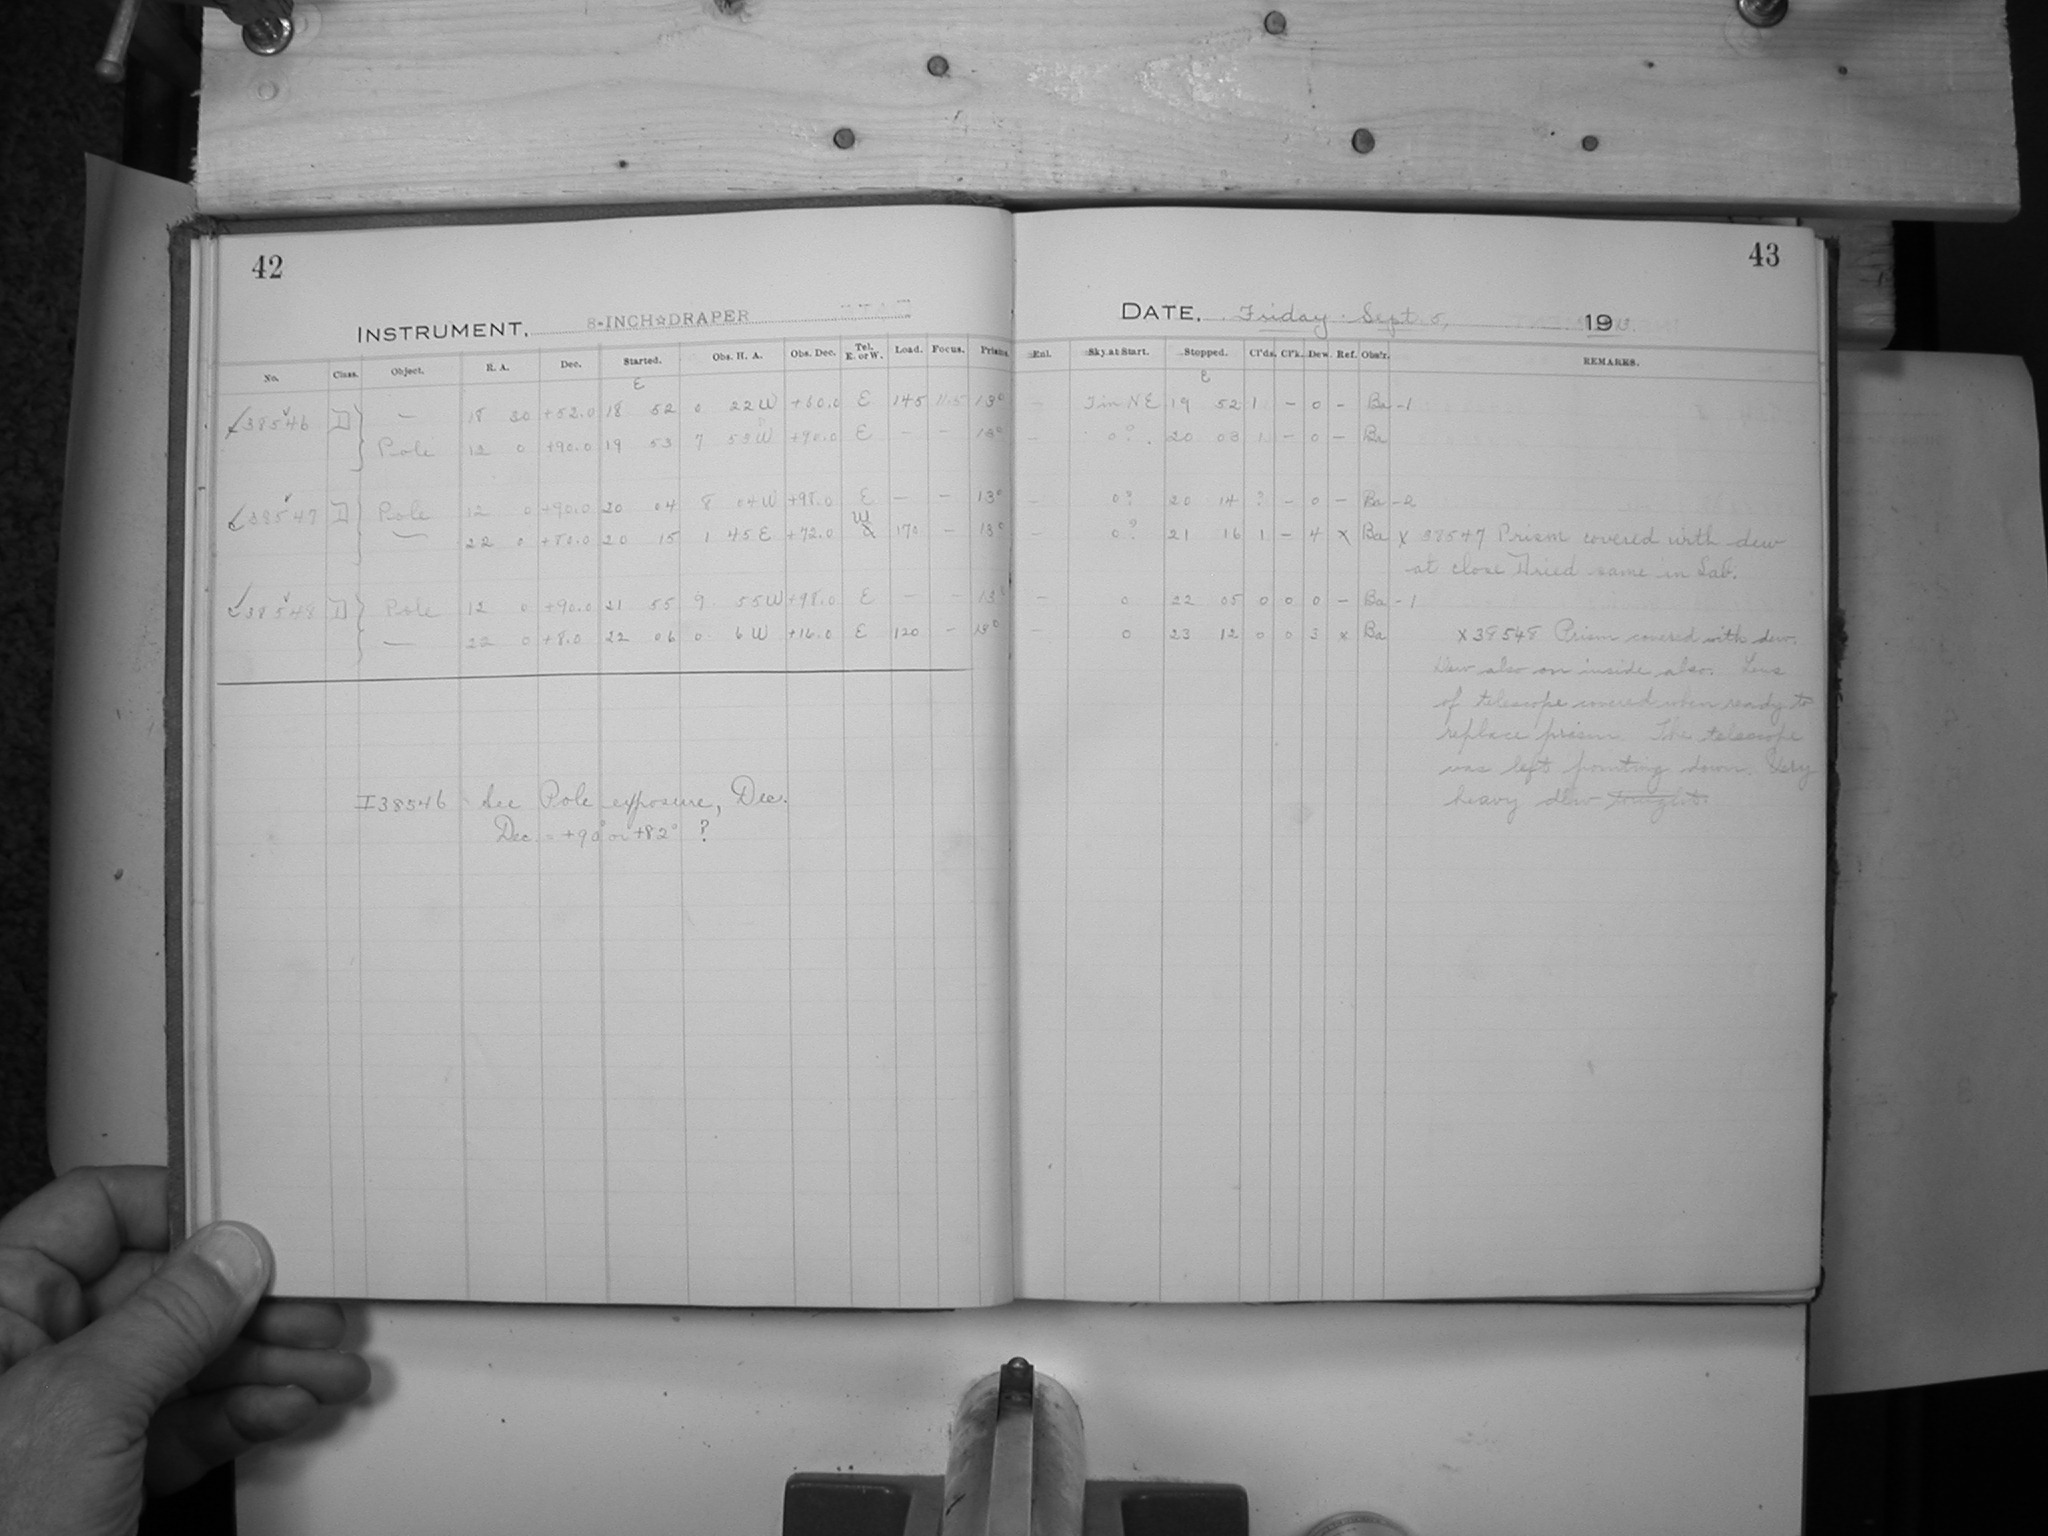 42
INSTRUMENT. 8-INCH☆DRAPER
No. Class. Object. R. A. Dec. Started. Obs. H. A. Obs. Dec. Tel. E. or W. Load. Focus. Prism.
E
38546 D — 18 30 +52.0 18 52 0 22W +60.0 E 145 11.5 13°
Pole 12 0 +90.0 19 53 7 53W +90.0 E — — 13°
38547 D Pole 12 0 +90.0 20 04 8 04W +98.0 E — — 13°
W
— 22 0 +80.0 20 15 1 45E +72.0 170 — 13°
38548 D Pole 12 0 +90.0 21 55 9 55W +98.0 E — — 13°
— 22 0 +8.0 22 06 0 6W +16.0 E 120 — 13°
I38546 See Pole exposure, Dec.
Dec. = +90° or +82° ?
43
DATE. Friday Sept. 5, 19
Enl. Sky at Start. Stopped. Cl'ds. Cl'k. Dew. Ref. Obs'r. REMARKS.
E
— 1 in NE 19 52 1 — 0 — Ba -1
— 0? 20 03 1 — 0 — Ba
— 0? 20 14 ? — 0 — Ba -2
— 0? 21 16 1 — 4 x Ba x 38547 Prism covered with dew
at close Dried same in Lab.
— 0 22 05 0 0 0 — Ba -1
— 0 23 12 0 0 3 x Ba x 38548 Prism covered with dew.
Dew also on inside also. Lens
of telescope covered when ready to
replace prism. The telescope
was left pointing down. Very
heavy dew tonight.